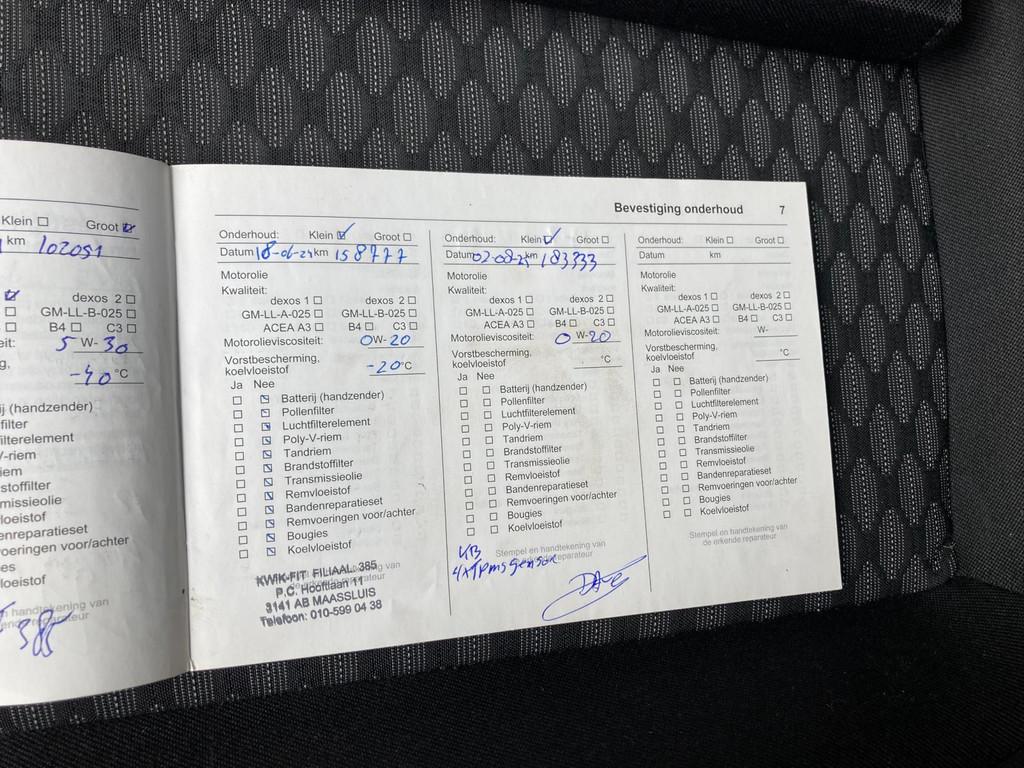 Klein ☐ Groot ☑
km 102051
☑ dexos 2 ☐
☐ GM-LL-B-025 ☐
☐ B4 ☐ C3 ☐
5 W- 30
-40 °C
(handzender)
filter
V-riem
enreparatieset
oeringen voor/achter
es
loeistof
385
Bevestiging onderhoud 7
Onderhoud: Klein ☑ Groot ☐
Datum 18-06-24 km 158777
Motorolie
Kwaliteit:
dexos 1 ☐ dexos 2 ☐
GM-LL-A-025 ☐ GM-LL-B-025 ☐
ACEA A3 ☐ B4 ☐ C3 ☐
Motorolieviscositeit: 0W- 20
Vorstbescherming,
koelvloeistof -20°C
Ja Nee
☐ ☑ Batterij (handzender)
☐ ☑ Pollenfilter
☐ ☑ Luchtfilterelement
☐ ☑ Poly-V-riem
☐ ☑ Tandriem
☐ ☑ Brandstoffilter
☐ ☑ Transmissieolie
☐ ☑ Remvloeistof
☐ ☑ Bandenreparatieset
☐ ☑ Remvoeringen voor/achter
☐ ☑ Bougies
☐ ☑ Koelvloeistof
KWIK-FIT FILIAAL 385
P.C. Hooftlaan 11
3141 AB MAASSLUIS
Telefoon: 010-599 04 38
Onderhoud: Klein ☑ Groot ☐
Datum 02-08-25 km 183333
Motorolie
Kwaliteit:
dexos 1 ☐ dexos 2 ☐
GM-LL-A-025 ☐ GM-LL-B-025 ☐
ACEA A3 ☐ B4 ☐ C3 ☐
Motorolieviscositeit: 0 W-20
Vorstbescherming,
koelvloeistof °C
Ja Nee
☐ ☐ Batterij (handzender)
☐ ☐ Pollenfilter
☐ ☐ Luchtfilterelement
☐ ☐ Poly-V-riem
☐ ☐ Tandriem
☐ ☐ Brandstoffilter
☐ ☐ Transmissieolie
☐ ☐ Remvloeistof
☐ ☐ Bandenreparatieset
☐ ☐ Remvoeringen voor/achter
☐ ☐ Bougies
☐ ☐ Koelvloeistof
Stempel en handtekening van
de erkende reparateur
KB
4x Tpms sensor
Onderhoud: Klein ☐ Groot ☐
Datum km
Motorolie
Kwaliteit:
dexos 1 ☐ dexos 2 ☐
GM-LL-A-025 ☐ GM-LL-B-025 ☐
ACEA A3 ☐ B4 ☐ C3 ☐
Motorolieviscositeit: W-
Vorstbescherming,
koelvloeistof °C
Ja Nee
☐ ☐ Batterij (handzender)
☐ ☐ Pollenfilter
☐ ☐ Luchtfilterelement
☐ ☐ Poly-V-riem
☐ ☐ Tandriem
☐ ☐ Brandstoffilter
☐ ☐ Transmissieolie
☐ ☐ Remvloeistof
☐ ☐ Bandenreparatieset
☐ ☐ Remvoeringen voor/achter
☐ ☐ Bougies
☐ ☐ Koelvloeistof
Stempel en handtekening van
de erkende reparateur